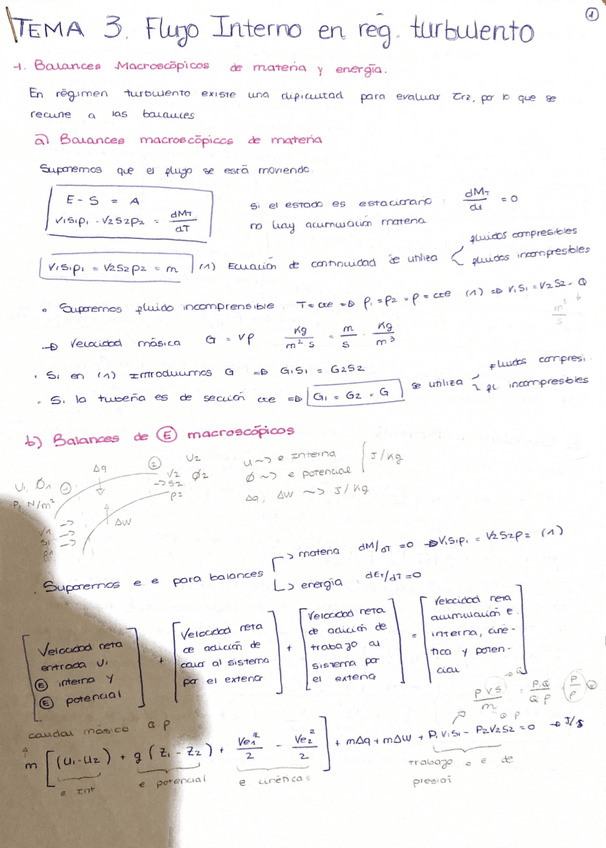 1
TEMA 3. Flujo Interno en rég. turbulento
1. Balances Macroscópicos de materia y energía.
En régimen turbulento existe una dificultad para evaluar τrz, por lo que se
recurre a los balances
a) Balances macroscópicos de materia
Suponemos que el flujo se está moviendo.
E - S = A
V1S1ρ1 - V2S2ρ2 = dMT/dT
Si el estado es estacionario dMT/dt = 0
no hay acumulación materia
V1S1ρ1 = V2S2ρ2 = m (1) Ecuación de continuidad se utiliza
fluidos compresibles
fluidos incompresibles
• Suponemos fluido incomprensible. T = cte => ρ1 = ρ2 = ρ = cte (1) => V1S1 = V2S2 = Q
m³/s
→ Velocidad másica G = Vρ Kg/m² s = m/s · Kg/m³
• Si en (1) introducimos G => G1S1 = G2S2
• Si la tubería es de sección cte => G1 = G2 = G se utiliza
fluidos compresi.
fl. incompresibles
b) Balances de E macroscópicos
U1 Ø1 1
P1 N/m²
V1 →
S1 →
ρ1 →
Δq
ΔW
2 U2
V2 Ø2
→ S2
ρ2
U ~> e interna
Ø ~> e potencial
J/Kg
Δq, ΔW ~> J/Kg
. Suponemos e e para balances
> materia dM/dT = 0 → V1S1ρ1 = V2S2ρ2 (1)
> energía dET/dT = 0
[Velocidad neta entrada U1 E interna y E potencial]
+ [Velocidad neta de adición de calor al sistema por el exterior]
+ [Velocidad neta de adición de trabajo al sistema por el exterior]
= [Velocidad neta acumulación e interna, ciné- tica y poten- cial]
caudal másico Q ρ
PVS/m = P·Q/Qρ = P/ρ
m [(U1-U2) + g (Z1 - Z2) + Ve1²/2 - Ve2²/2] + mΔq + mΔW + P1V1S1 - P2V2S2 = 0 → J/s
e int
e potencial
e cinéticas
trabajo o e de
presión